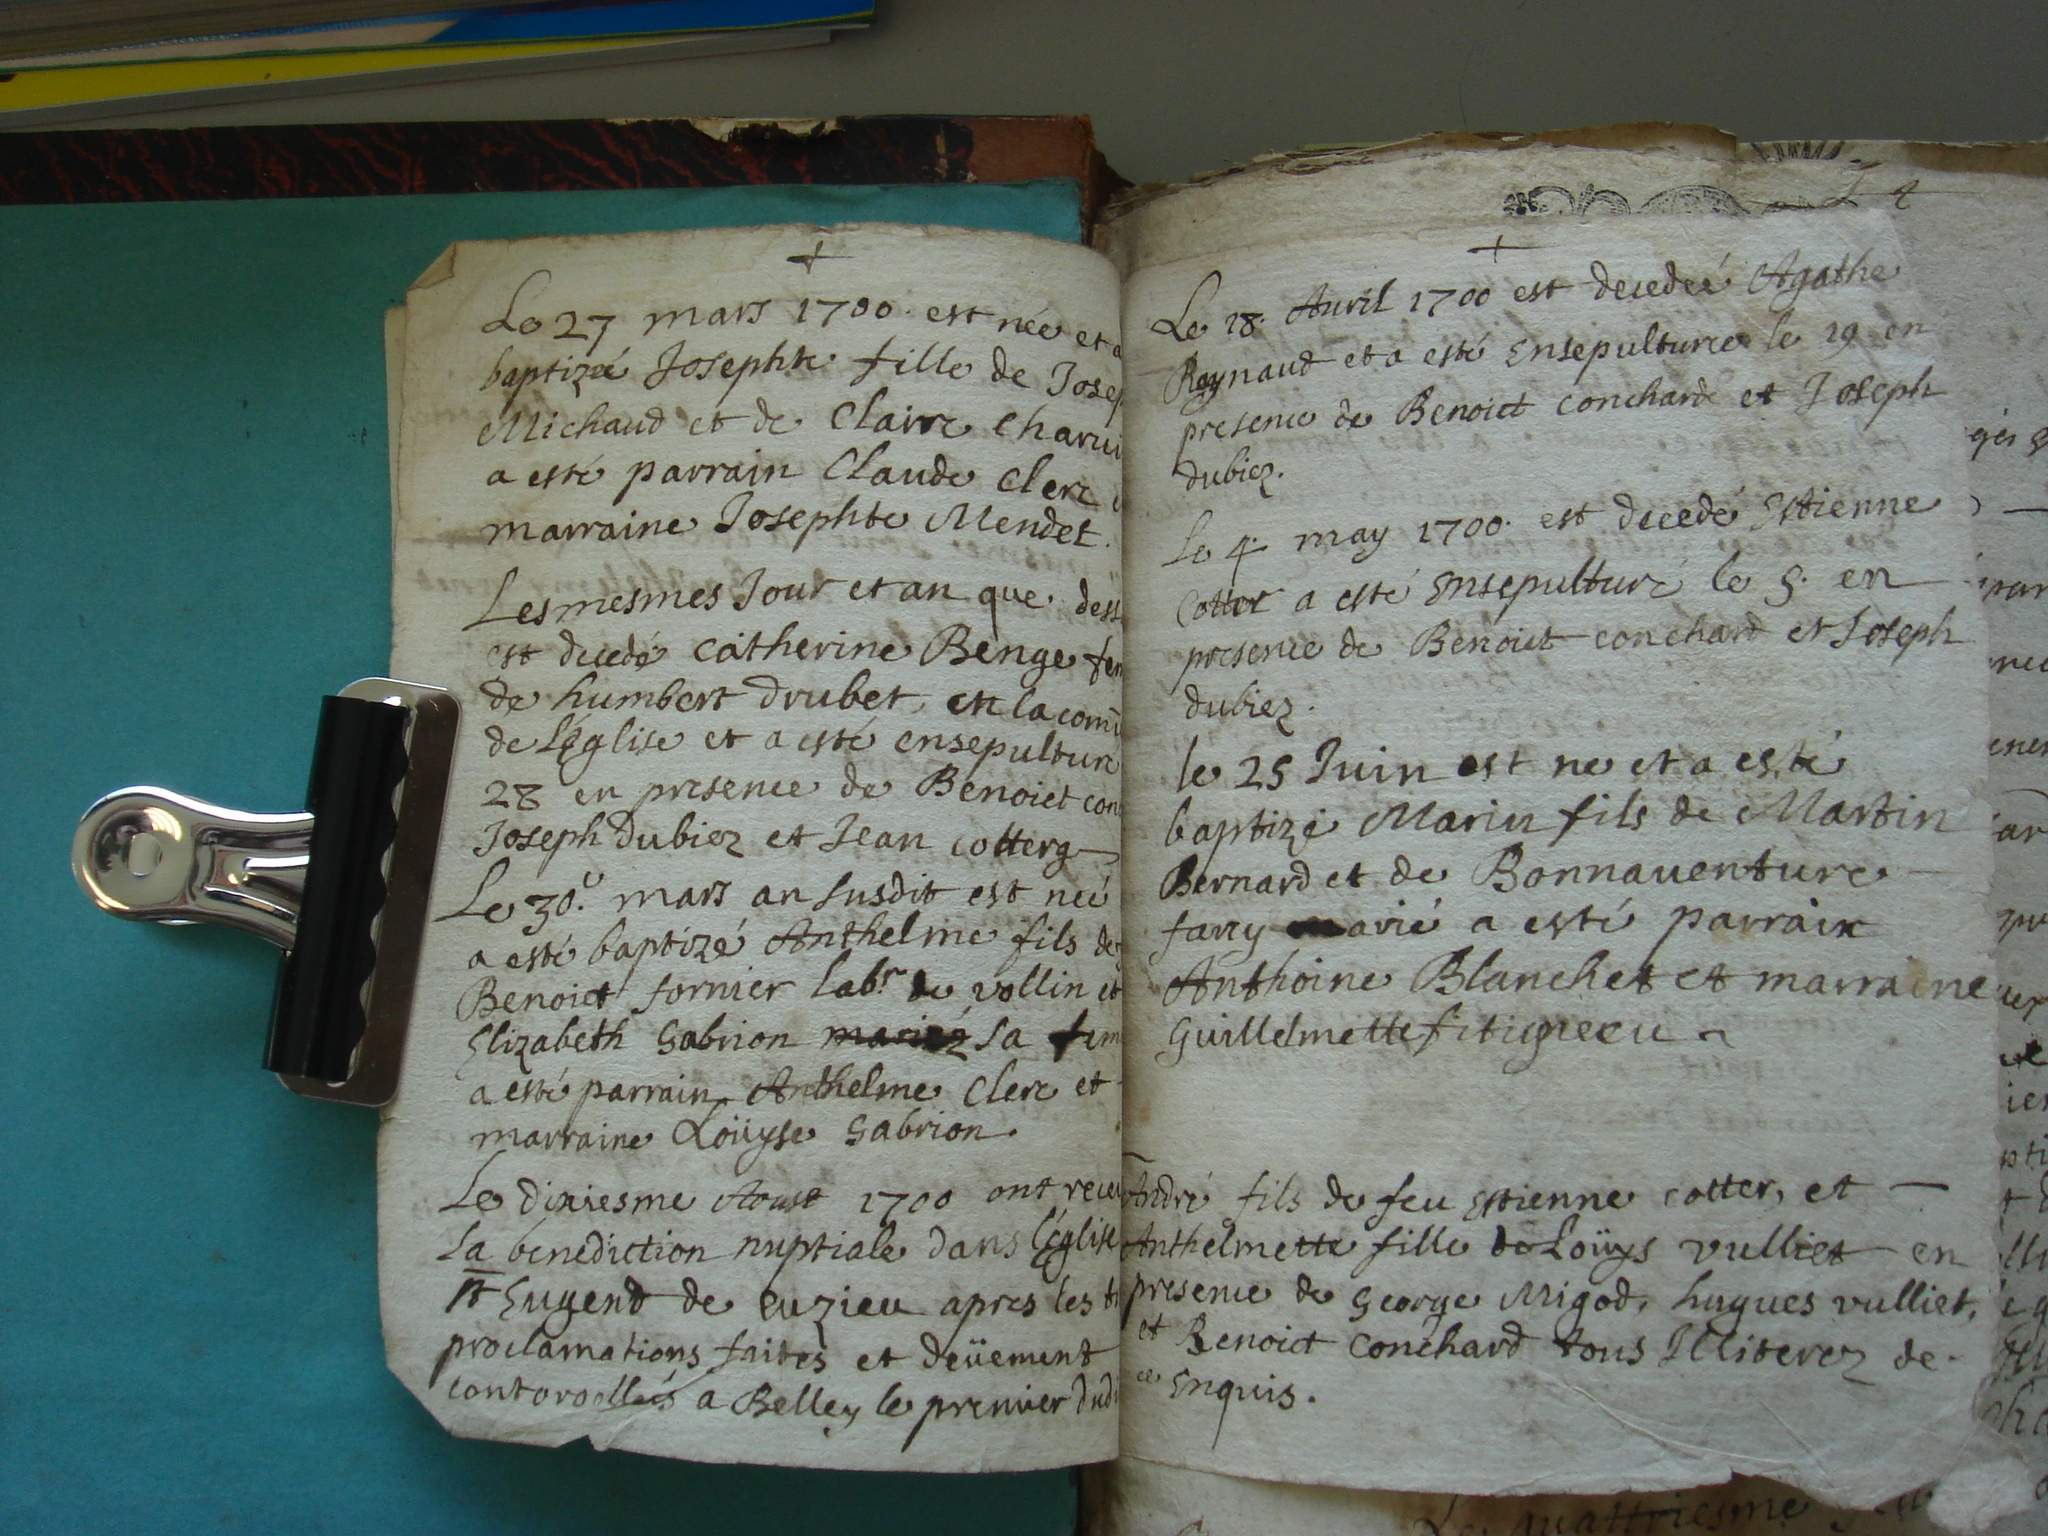 +
Le 27 mars 1700. est née et a
baptizé Josephte fille de Josep
Michaud et de Claire Charui
a esté parrain Claude Clerc
marraine Josephte Mendet.
Les mesmes Jour et an que dess
est decedé catherine Benge fem
de humbert drubet, en la comū
de L'église et a esté ensepulturé
28 en presence de Benoict con
Joseph dubiez et Jean cotterg
Le 30.e mars an susdit est neé
a esté baptizé Anthelme fils de
Benoict fornier labr. de vollin et
Elizabeth Gabrion mariéz sa fem
a esté parrain Anthelme Clerc et
marraine Loüyse Gabrion.
Le dixiesme Aoust 1700 ont receu
La benediction nuptiale dans l'église
St Eugend de cuzieu apres les tr
proclamations faites et deüement
controollés a Belley le premier dud
4
+
Le 18. Auril 1700 est decedeé Agathe
Reynaud et a esté Ensepulturée le 19 en
presence de Benoict conchard et Joseph
dubiez.
Le 4. may 1700. est decedé Estienne
Cotter a esté Ensepulturé le 5. en
presence de Benoict conchard et Joseph
dubiez.
le 25 Juin est ne et a esté
baptizé Marin fils de Martin
Bernard et de Bonnauenture
farcy marié a esté parrain
Anthoine Blanchet et marraine
Guillelmette
André fils de feu Estienne cotter, et
Anthelmette fille de Loüys vulliet en
presence de George Migod, hugues vulliet,
et Benoict Conchard tous Illiterez de
ce Enquis.
Le quattriesme